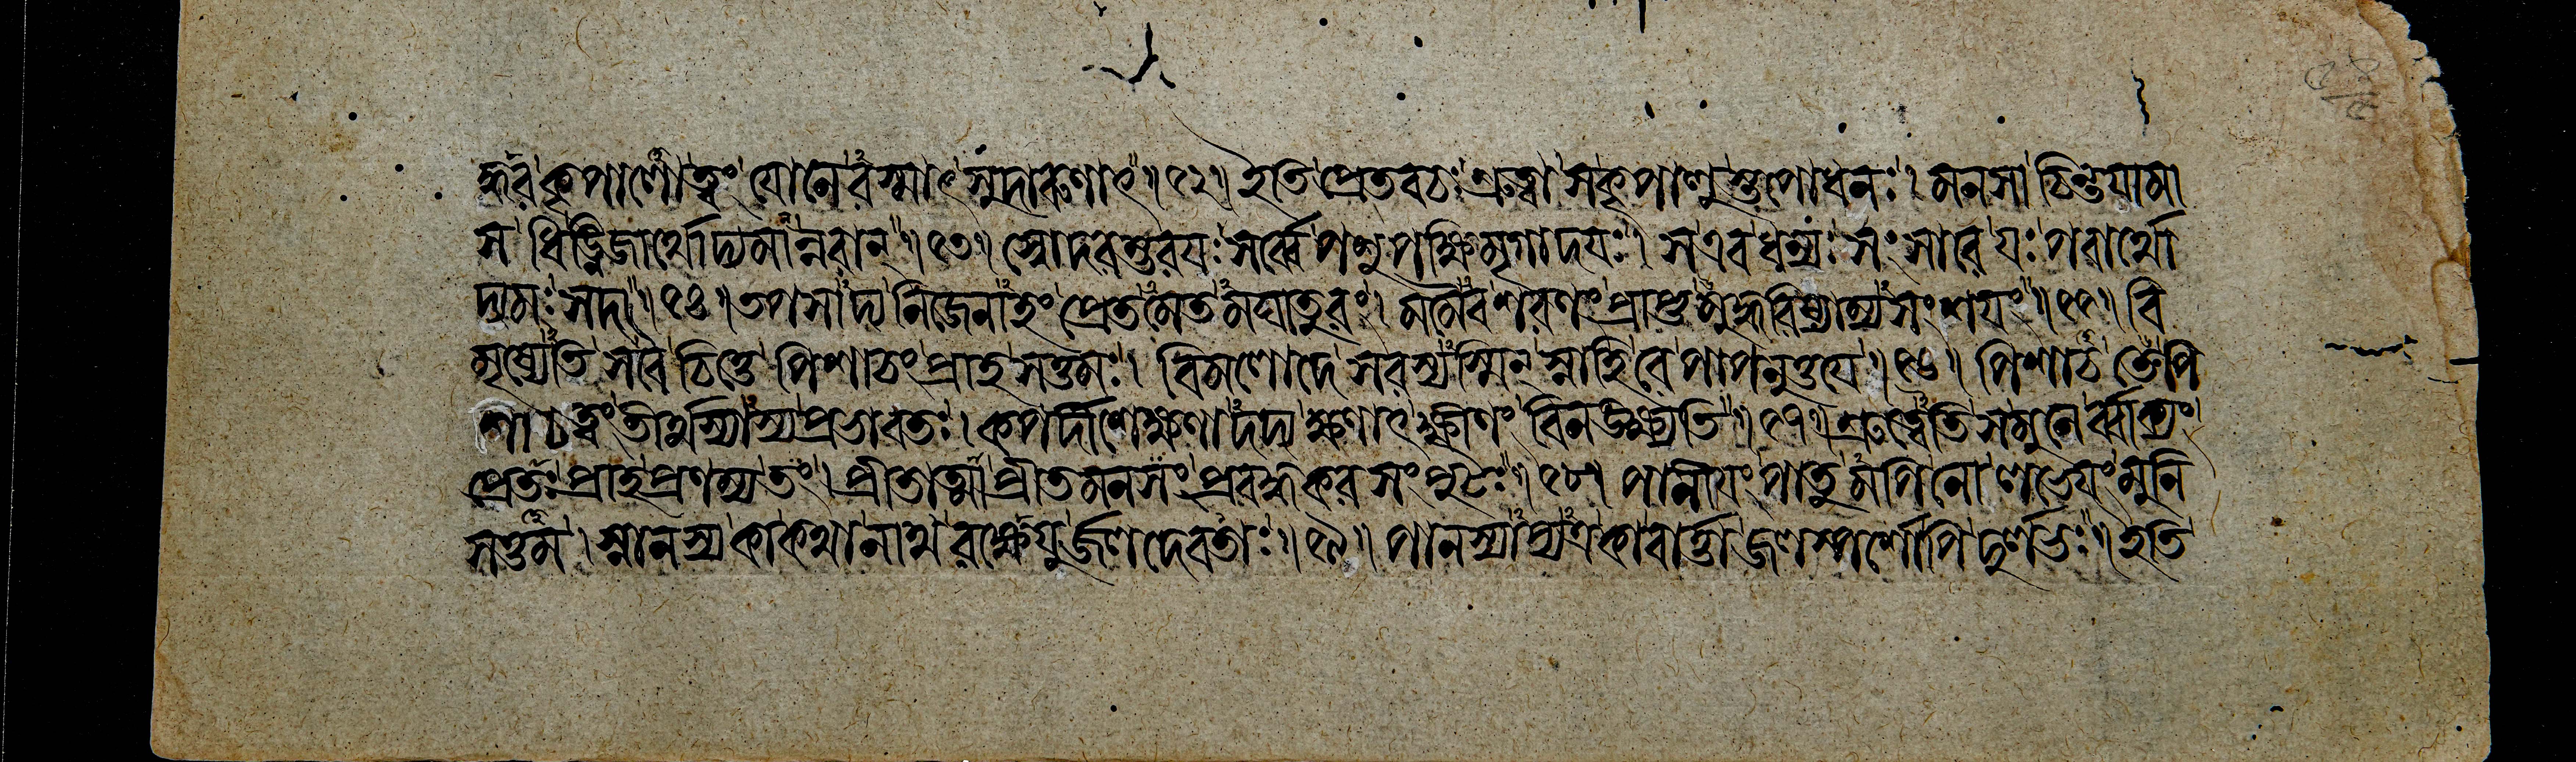 দ্ধর কৃপালো ত্বং যোনেরস্মাৎ সুদারুণাৎ ॥ ৫২ ॥ ইতি প্রেতবচঃ শ্রুত্বা স কৃপালুস্তপোধনঃ । মনসা চিন্তয়ামা
স ধিঙ্নিজার্থোদ্যমান্নরান্ ॥ ৫৩ ॥ স্বোদরম্ভরয়ঃ সর্ব্বে পশুপক্ষিমৃগাদয়ঃ । স এব ধন্যঃ সংসারে যঃ পরার্থো
দ্যমঃ সদা ॥ ৫৪ ॥ তপসাদ্য নিজেনাহং প্রেতমেতমঘাতুরং । মামেব শরণং প্রাপ্তমুদ্ধরিষ্যাম্যসংশয়ং ॥ ৫৫ ॥ বি
মৃষ্যেতি স বৈ চিত্তে পিশাচং প্রাহ সত্তমঃ । বিমলোদে সরস্যস্মিন্ স্নাহি রে পাপনুত্তয়ে ॥ ৫৬ ॥ পিশাচ তেপি
শাচত্বং তীর্থস্যাস্য প্রভাবতঃ । কপর্দীশেক্ষণাদদ্য ক্ষণাৎ ক্ষীণং বিনঙ্ক্ষ্যতি ॥ ৫৭ ॥ শ্রুত্বেতি স মুনের্ব্বাক্যং
প্রেতঃ প্রাহ প্রণম্য তং । প্রীতাত্মা প্রীতমনসং প্রবদ্ধকরসংপুটঃ ॥ ৫৮ ॥ পানীয়ং পাতুমপি নো লভেয়ং মুনি
সত্তম । স্নানস্য কা কথা নাথ রক্ষেয়ুর্জলদেবতাঃ ॥ ৫৯ ॥ পানস্যাপ্যত্র কা বার্ত্তা জলস্পর্শোপি দুর্লভঃ । ইতি